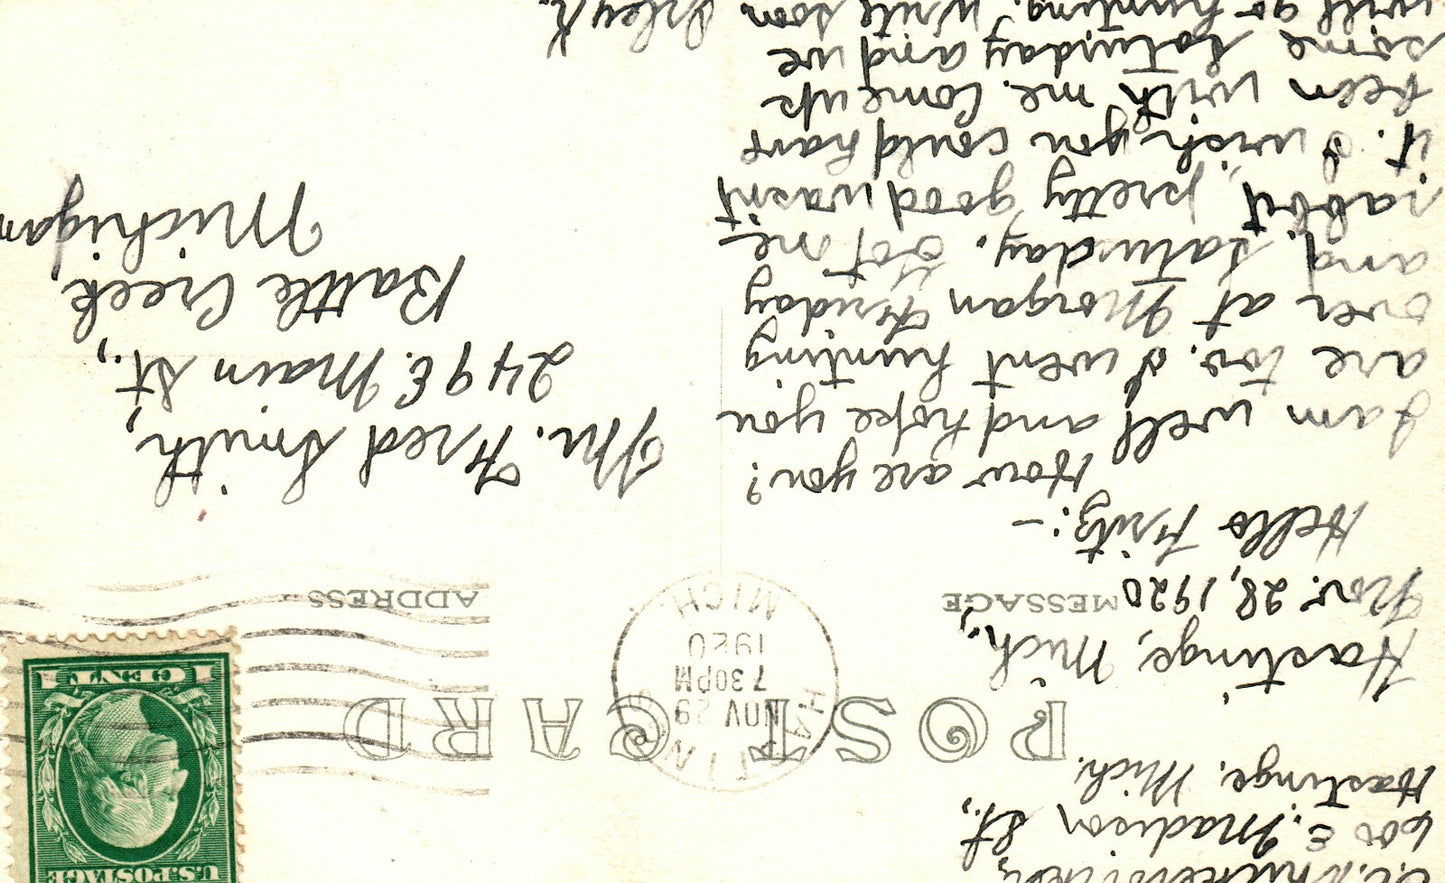 600 E. Madison St.,
Hastings, Mich.
U.S. POSTAGE
1 CENT 1
POST CARD
HASTINGS
NOV 29
7 30PM
1920
MICH.
Hastings, Mich.,
Nov. 28, 1920
MESSAGE
ADDRESS
Hello Fritz:—
How are you?
I am well and hope you
are too. I went hunting
over at Morgan Friday
and Saturday. Got one
rabbit, pretty good wasn't
it. I wish you could have
been with me. Come up
some Saturday and we
will go hunting. Write soon.
Mr. Fred Smith,
249 E. Main St.,
Battle Creek,
Michigan